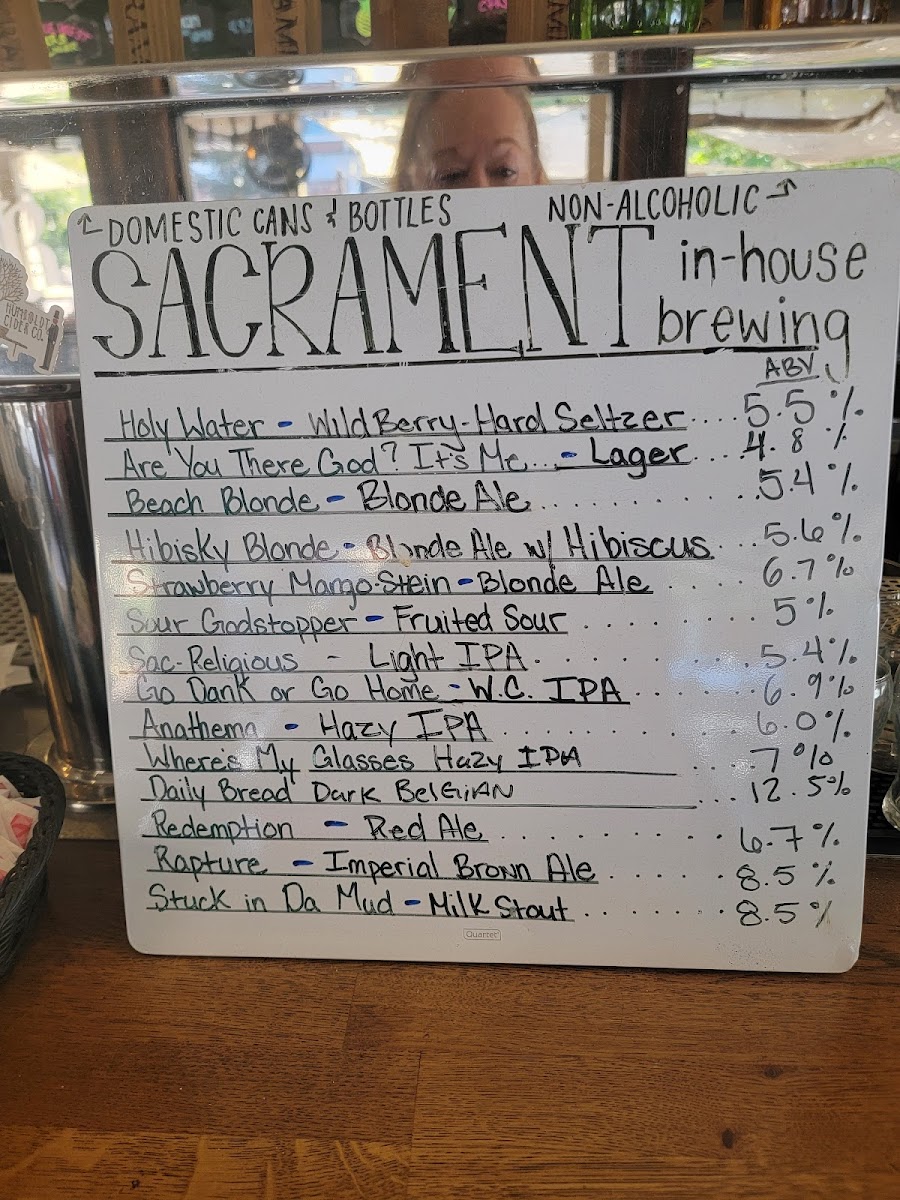 ← DOMESTIC CANS & BOTTLES
NON-ALCOHOLIC →
SACRAMENT in-house brewing
ABV
Holy Water - Wild Berry-Hard Seltzer....5.5%
Are You There God? It's Me...- Lager....4.8%
Beach Blonde - Blonde Ale...........5.4%
Hibisky Blonde - Blonde Ale w/ Hibiscus...5.6%
Strawberry Mango-Stein - Blonde Ale......6.7%
Sour Godstopper - Fruited Sour.........5%
Sac-Religious - Light IPA..........5.4%
Go Dank or Go Home - W.C. IPA.......6.9%
Anathema - Hazy IPA...........6.0%
Where's My Glasses Hazy IPA ....7%
Daily Bread Dark BelGiAN ...12.5%
Redemption - Red Ale..........6.7%
Rapture - Imperial Brown Ale......8.5%
Stuck in Da Mud - Milk Stout........8.5%
Quartet
HUMBOLDT
CIDER CO.